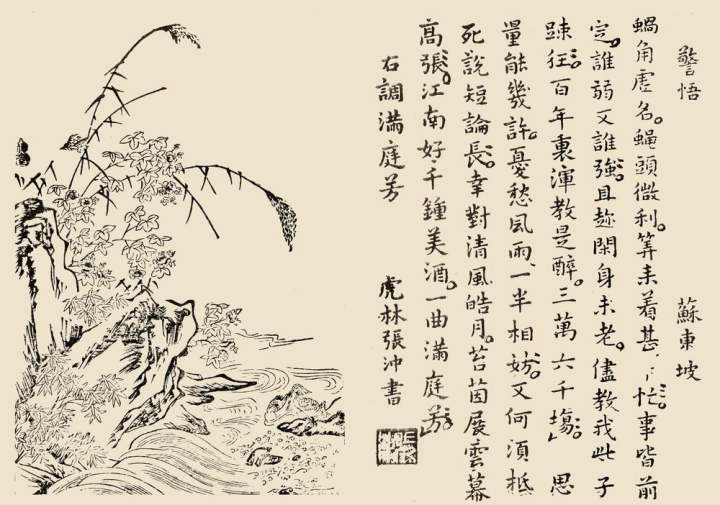 警悟 蘇東坡
蝸角虛名。蠅頭微利。筭来着甚忙。事皆前
定。誰弱又誰強。且趂閑身未老。儘教我些子
踈狂。百年裏渾教是醉。三萬六千塲。思
量能幾許。憂愁風雨、一半相妨。又何須抵
死說短論長。幸對清風皓月。苔茵展雲幕
高張。江南好千鐘美酒。一曲滿庭芳。
右調滿庭芳 虎林張沖書